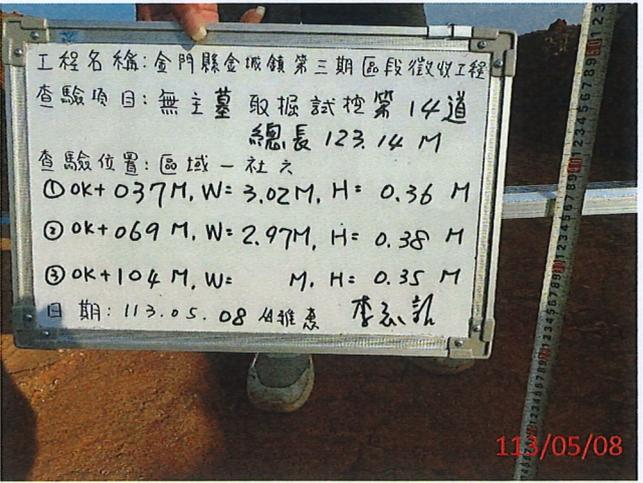 工程名稱:金門縣金城鎮第三期區段徵收工程
查驗項目:無主墓取掘試挖第14道
總長123.14 M
查驗位置:區域一社六
①0K+037M, W= 3.02M, H= 0.36 M
②0K+069M, W= 2.97M, H= 0.38 M
③0K+104 M, W= M, H= 0.35 M
日期:113.05.08
113/05/08